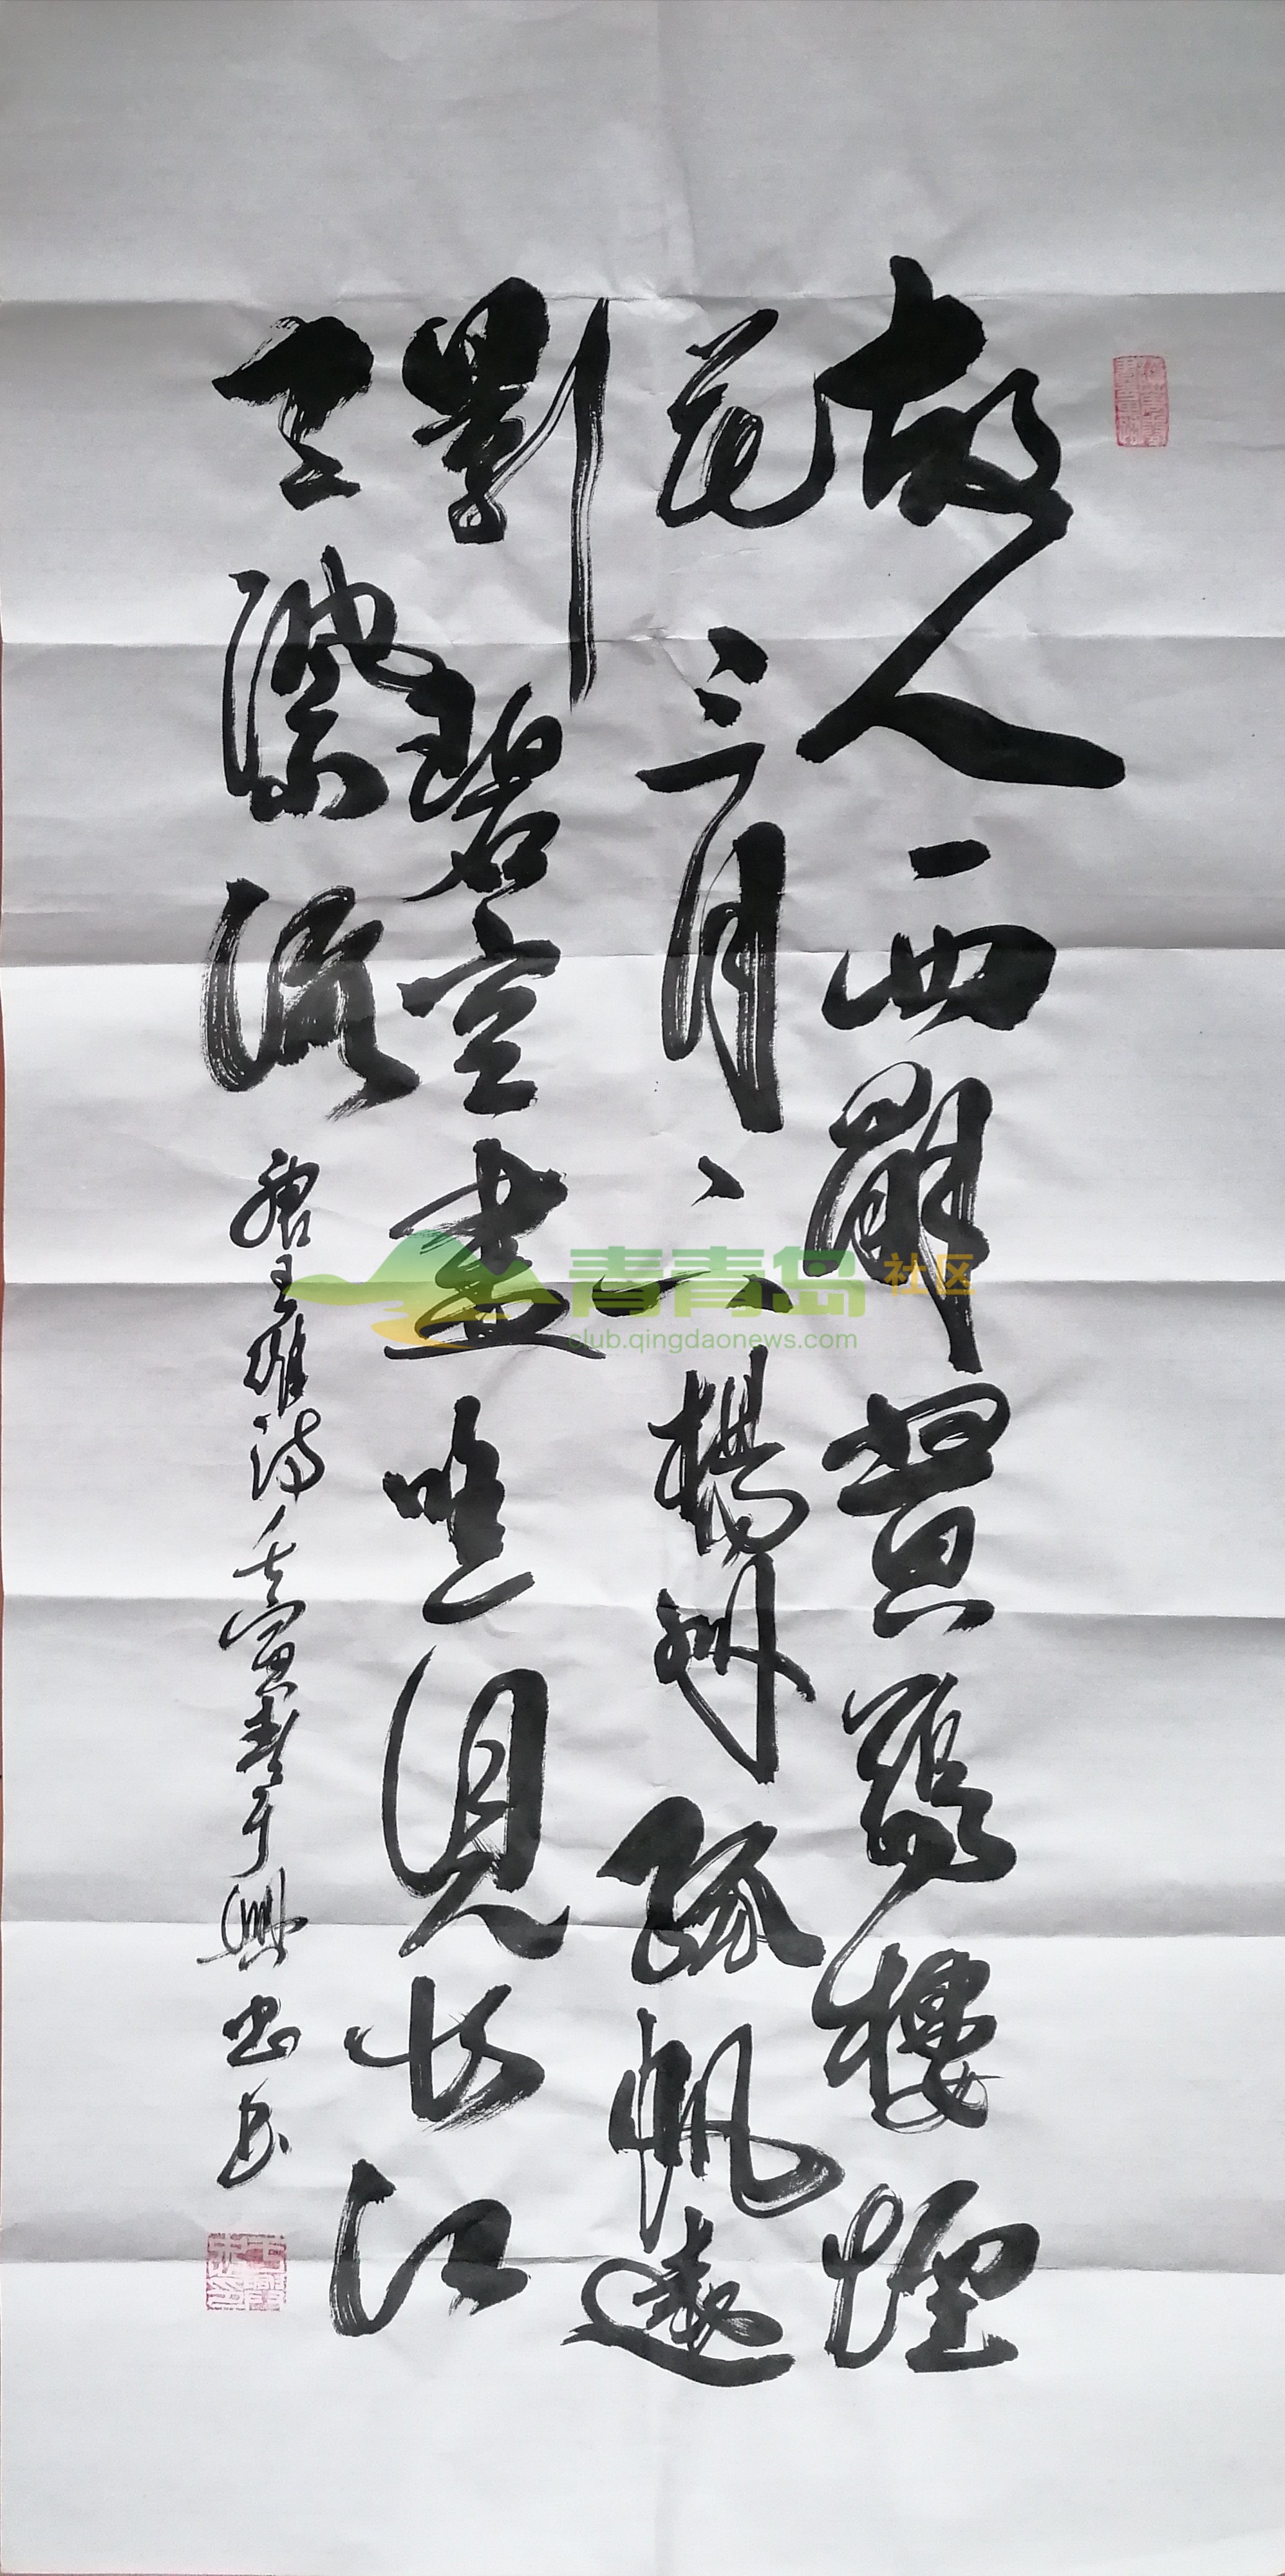 故人西辭黃鶴樓煙
花三月下揚州孤帆遠
影碧空盡唯見長江
天際流 唐王維詩 壬寅春于興
青青岛社区
club.qingdaonews.com